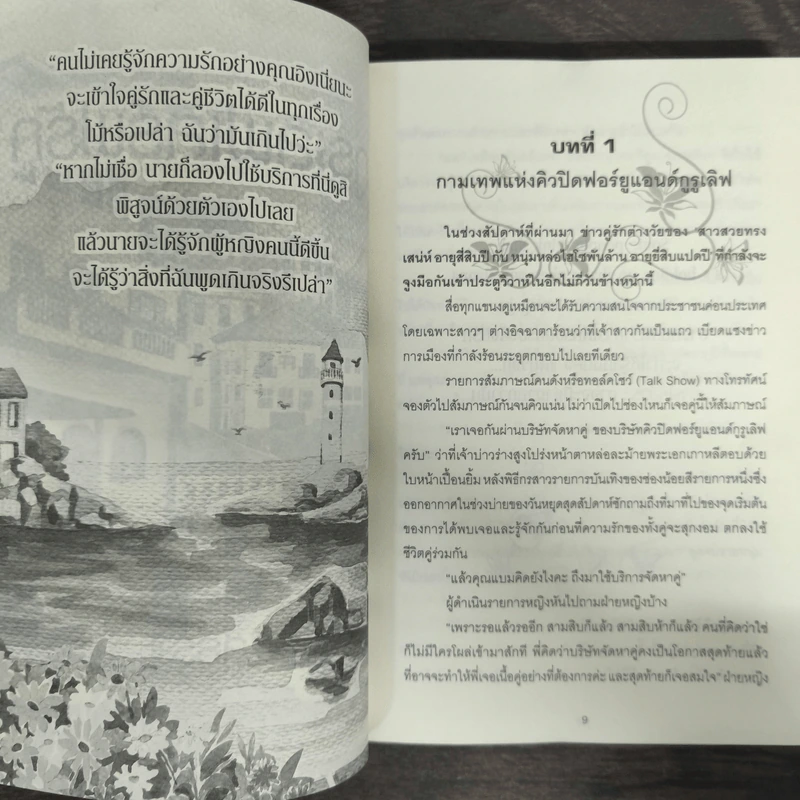 “คนไม่เคยรู้จักความรักอย่างคุณอิงเนี่ยนะ
จะเข้าใจคู่รักและคู่ชีวิตได้ดีในทุกเรื่อง
โม้หรือเปล่า ฉันว่ามันเกินไปว่ะ”
“หากไม่เชื่อ นายก็ลองไปใช้บริการที่นี่ดูสิ
พิสูจน์ด้วยตัวเองไปเลย
แล้วนายจะได้รู้จักผู้หญิงคนนี้ดีขึ้น
จะได้รู้ว่าสิ่งที่ฉันพูดเกินจริงรึเปล่า”
บทที่ 1
กามเทพแห่งคิวปิดฟอร์ยูแอนด์กูรูเลิฟ
ในช่วงสัปดาห์ที่ผ่านมา ข่าวคู่รักต่างวัยของ ‘สาวสวยทรง
เสน่ห์ อายุสี่สิบปี กับ หนุ่มหล่อไฮโซพันล้าน อายุยี่สิบแปดปี’ ที่กำลังจะ
จูงมือกันเข้าประตูวิวาห์ในอีกไม่กี่วันข้างหน้านี้
สื่อทุกแขนงดูเหมือนจะได้รับความสนใจจากประชาชนค่อนประเทศ
โดยเฉพาะสาวๆ ต่างอิจฉาตาร้อนว่าที่เจ้าสาวกันเป็นแถว เบียดแซงข่าว
การเมืองที่กำลังร้อนระอุตกขอบไปเลยทีเดียว
รายการสัมภาษณ์คนดังหรือทอล์คโชว์ (Talk Show) ทางโทรทัศน์
จองตัวไปสัมภาษณ์กันจนคิวแน่น ไม่ว่าเปิดไปช่องไหนก็เจอคู่นี้ให้สัมภาษณ์
“เราเจอกันผ่านบริษัทจัดหาคู่ ของบริษัทคิวปิดฟอร์ยูแอนด์กูรูเลิฟ
ครับ” ว่าที่เจ้าบ่าวร่างสูงโปร่งหน้าตาหล่อละม้ายพระเอกเกาหลีตอบด้วย
ใบหน้าเปื้อนยิ้ม หลังพิธีกรสาวรายการบันเทิงของช่องน้อยสีรายการหนึ่งซึ่ง
ออกอากาศในช่วงบ่ายของวันหยุดสุดสัปดาห์ซักถามถึงที่มาที่ไปของจุดเริ่มต้น
ของการได้พบเจอและรู้จักกันก่อนที่ความรักของทั้งคู่จะสุกงอม ตกลงใช้
ชีวิตคู่ร่วมกัน
“แล้วคุณแบมคิดยังไงคะ ถึงมาใช้บริการจัดหาคู่”
ผู้ดำเนินรายการหญิงหันไปถามฝ่ายหญิงบ้าง
“เพราะรอแล้วรออีก สามสิบก็แล้ว สามสิบห้าก็แล้ว คนที่คิดว่าใช่
ก็ไม่มีใครโผล่เข้ามาสักที พี่คิดว่าบริษัทจัดหาคู่คงเป็นโอกาสสุดท้ายแล้ว
ที่อาจจะทำให้พี่เจอเนื้อคู่อย่างที่ต้องการค่ะ และสุดท้ายก็เจอสมใจ” ฝ่ายหญิง
9